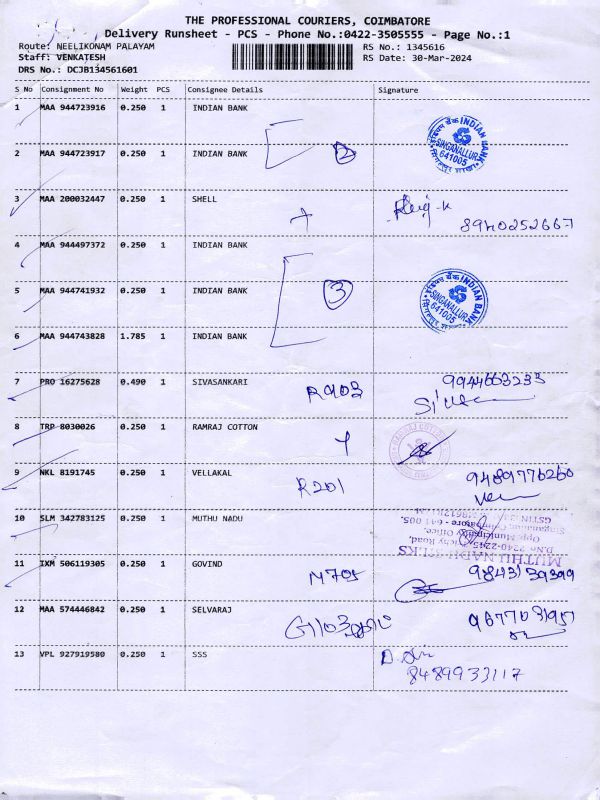 THE PROFESSIONAL COURIERS, COIMBATORE
Delivery Runsheet - PCS - Phone No.:0422-3505555 - Page No.:1
Route: NEELIKONAM PALAYAM
Staff: VENKATESH
DRS No.: DCJB134561601
RS No.: 1345616
RS Date: 30-Mar-2024
S No Consignment No Weight PCS Consignee Details Signature
1 MAA 944723916 0.250 1 INDIAN BANK
2 MAA 944723917 0.250 1 INDIAN BANK 2
INDIAN BANK
SINGANALLUR
641005
3 MAA 200032447 0.250 1 SHELL
8940252667
4 MAA 944497372 0.250 1 INDIAN BANK
5 MAA 944741932 0.250 1 INDIAN BANK 3
INDIAN BANK
SINGANALLUR
641005
6 MAA 944743828 1.785 1 INDIAN BANK
7 PRO 16275628 0.490 1 SIVASANKARI R903 9944663233
8 TRP 8030026 0.250 1 RAMRAJ COTTON
9 NKL 8191745 0.250 1 VELLAKAL R201 9489776260
10 SLM 342783125 0.250 1 MUTHU NADU
MUTHU NADU SILKS
11 IXM 506119305 0.250 1 GOVIND M705 9843139399
12 MAA 574446842 0.250 1 SELVARAJ 9677031957
13 VPL 927919580 0.250 1 SSS
8489933117